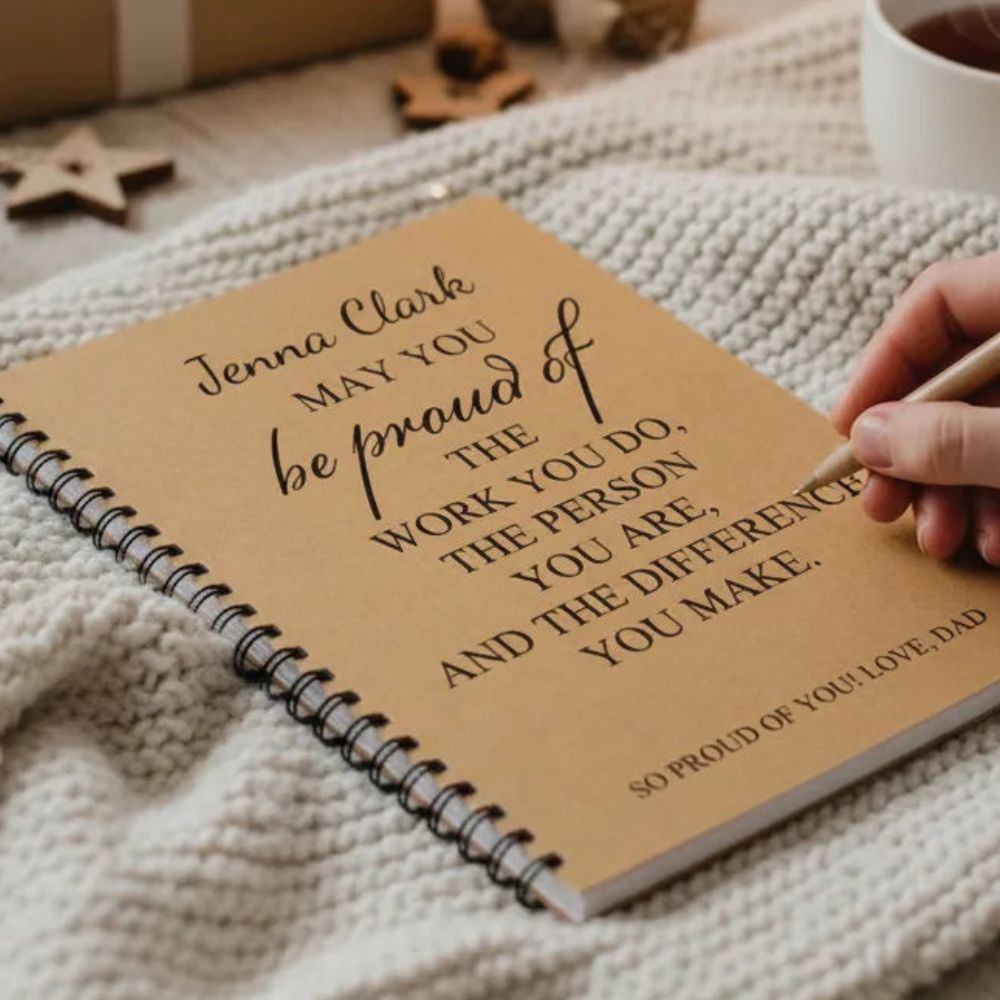 Jenna Clark
MAY YOU
be proud of
THE
WORK YOU DO,
THE PERSON
YOU ARE,
AND THE DIFFERENCE
YOU MAKE.
SO PROUD OF YOU! LOVE, DAD